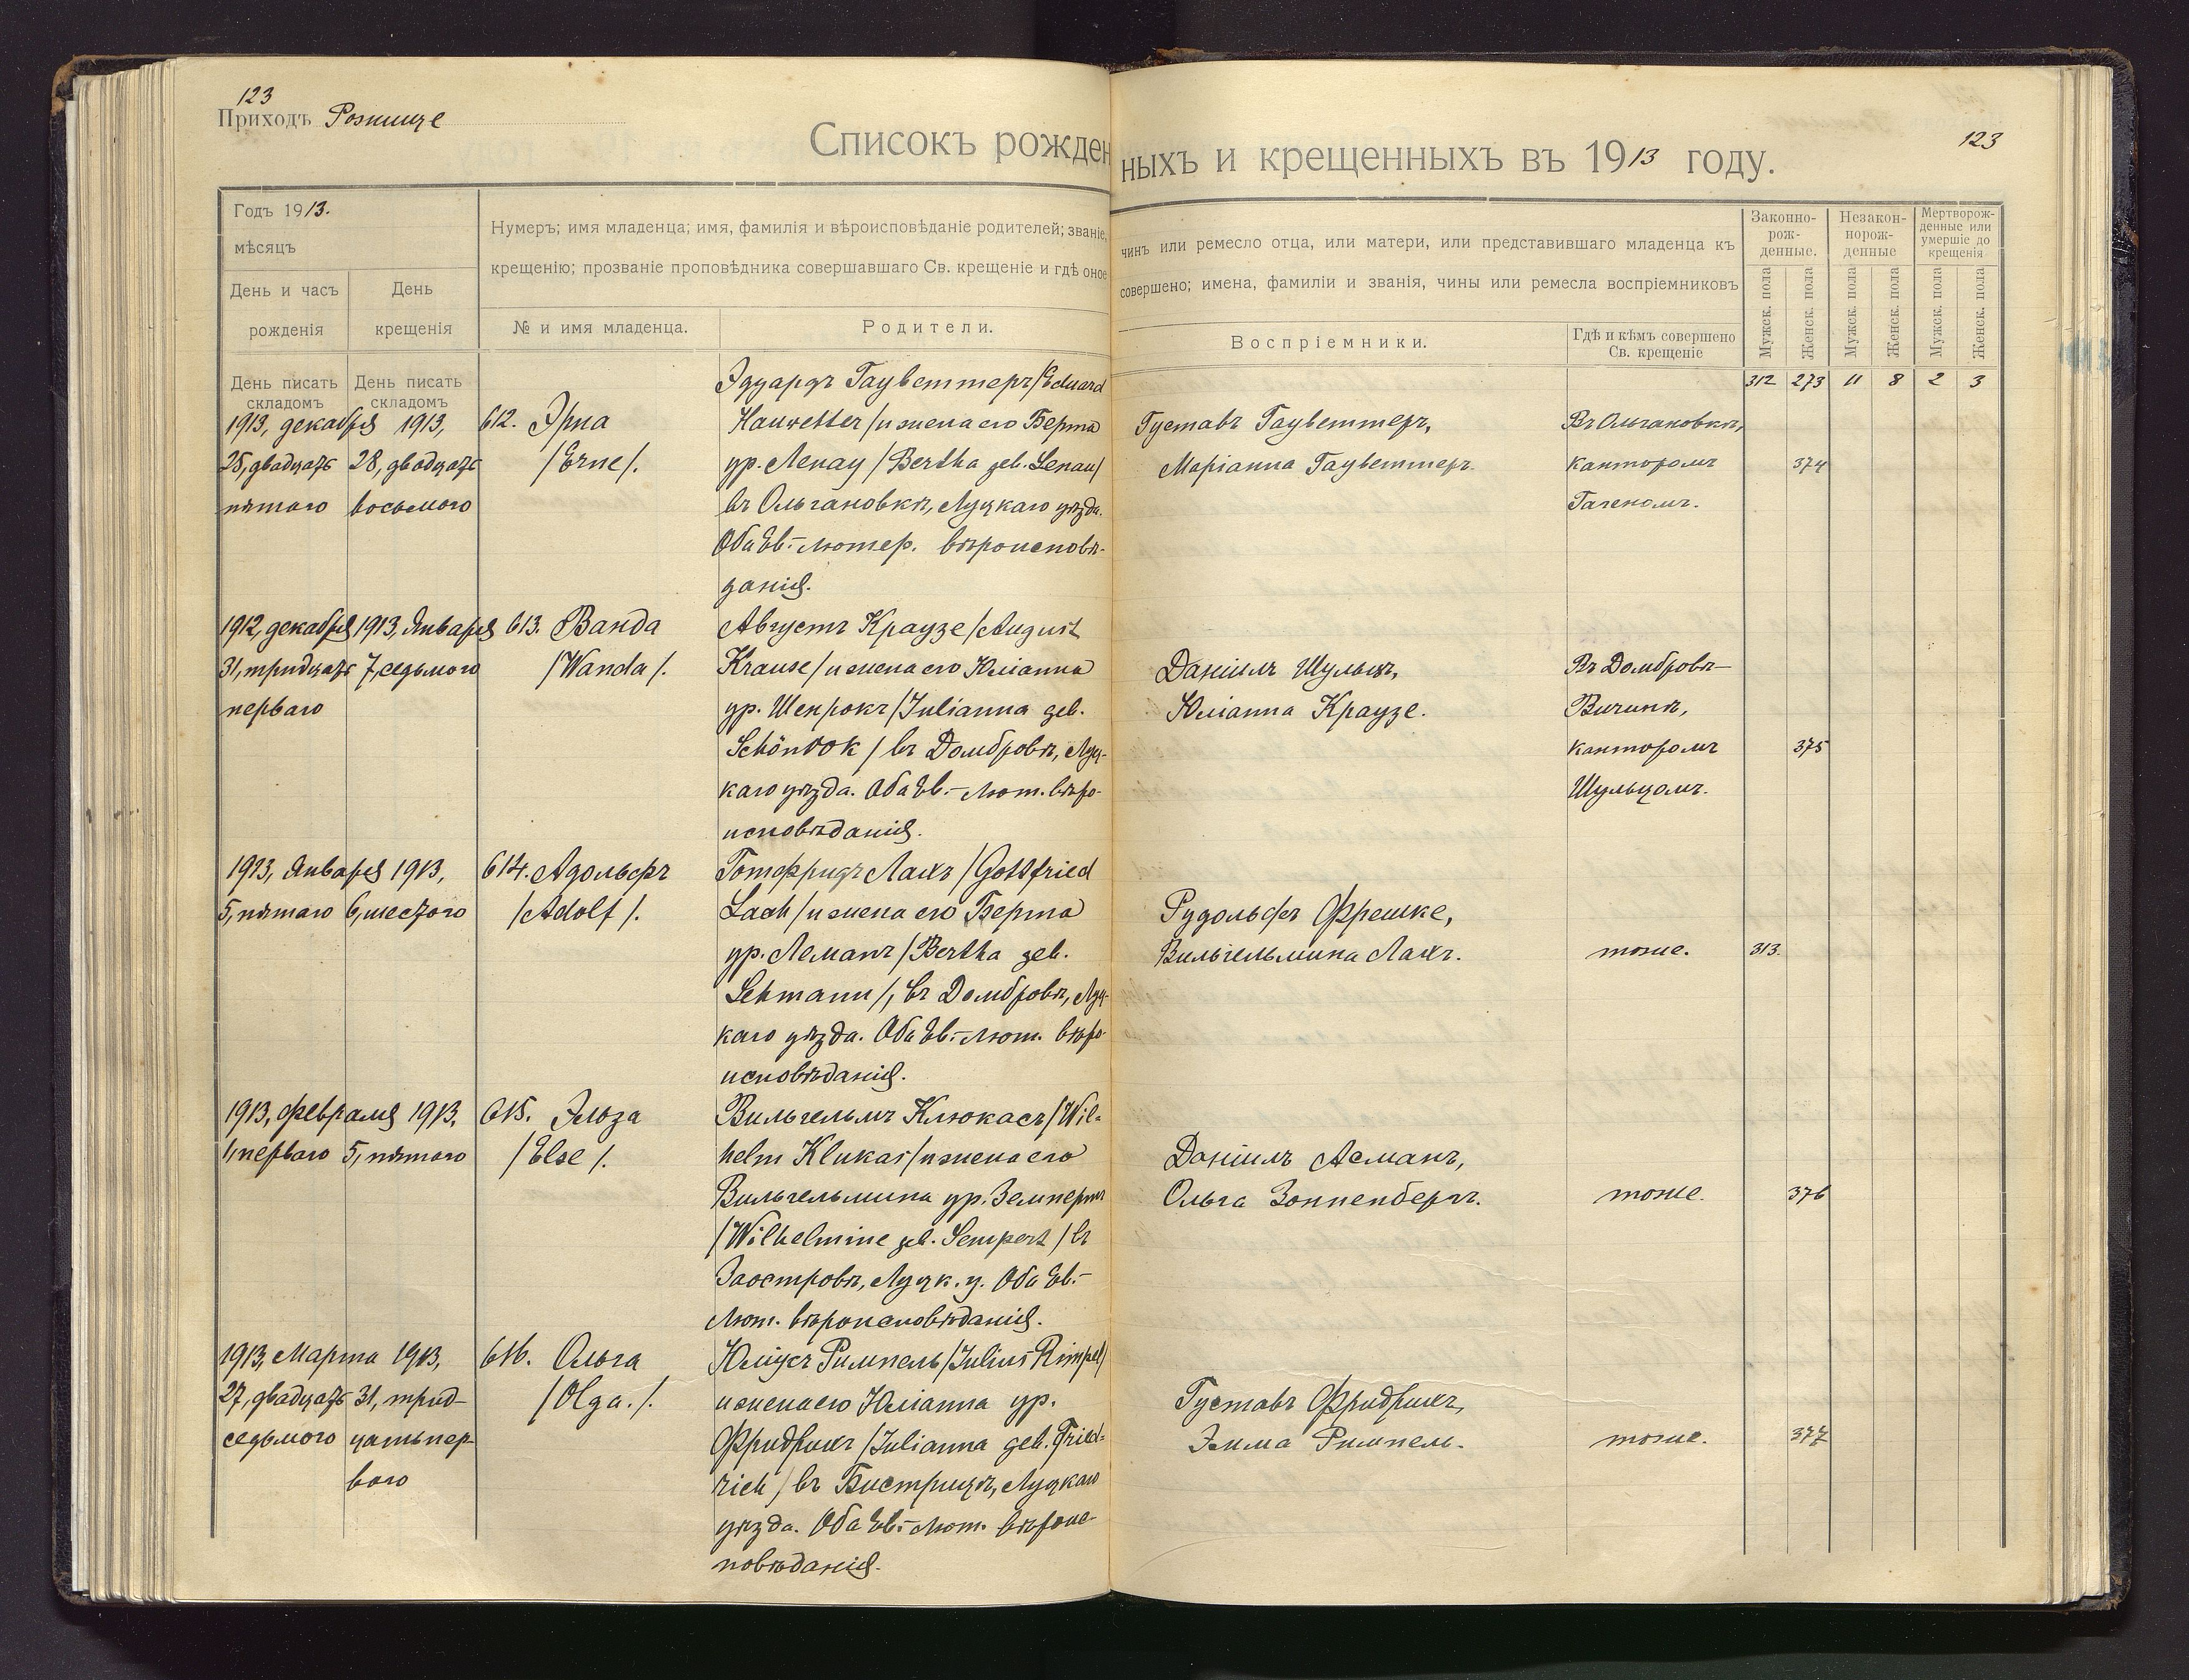 123
Приходъ Рожище
Списокъ рожденныхъ и крещенныхъ въ 1913 году.
123
Годъ 1913.
мѣсяцъ
День и часъ рожденія
День крещенія
Нумеръ; имя младенца; имя, фамилія и вѣроисповѣданіе родителей; званіе, чинъ или ремесло отца, или матери, или представившаго младенца къ
крещенію; прозваніе проповѣдника совершавшаго Св. крещеніе и гдѣ оное совершено; имена, фамиліи и званія, чины или ремесла воспріемниковъ
№ и имя младенца.
Родители.
Воспріемники.
Гдѣ и кѣмъ совершено
Св. крещеніе
Законно-
рож-
денные.
Незакон-
норож-
денные
Мертворож-
денные или
умершіе до
крещенія
Мужск. пола
Женск. пола
Мужск. пола
Женск. пола
Мужск. пола
Женск. пола
День писать
складомъ
День писать
складомъ
312 273 11 8 2 3
1913, декабря
25, двадцать
пятаго
1913,
28, двадцать
восьмого
612. Эрна
/Erne/.
Эдуардъ Гауветтеръ/Eduard
Hauwetter/и жена его Берта
ур. Ленау /Bertha geb. Lenau/
въ Ольгановкѣ, Луцкаго уѣзда.
Оба Ев.-лютер. вѣроисповѣ-
данія.
Густавъ Гауветтеръ,
Маріанна Гауветтеръ.
Въ Ольгановкѣ,
канторомъ
374
1912, декабря
31, тридцать
перваго
1913, Января
7, седьмого
613. Ванда
/Wanda/.
Августъ Краузе/August
Krause/и жена его Юліанна
ур. Шенрокъ/Julianna geb.
Schönrok/ въ Домбровѣ, Луц-
каго уѣзда. Оба Ев.-Лют. вѣро-
исповѣданія.
Даніилъ Шульцъ,
Юліанна Краузе.
Въ Домбровѣ-
канторомъ
Шульцомъ.
375
1913, Января
5, пятаго
1913,
6, шестого
614. Адольфъ
/Adolf/.
Готфридъ Лахъ /Gottfried
Laah/и жена его Берта
ур. Леманъ/Bertha geb.
Lehmann/, въ Домбровѣ, Луц-
каго уѣзда. Оба Ев.-Лют. вѣро-
исповѣданія.
Рудольфъ Фрешке,
Вильгельмина Лахъ.
тоже.
313.
1913, февраля
1, перваго
1913,
5, пятаго
615. Эльза
/Else/.
Вильгельмъ Клюкасъ/Wil-
helm Klukas/и жена его
Вильгельмина ур. Земпертъ
/Wilhelmine geb. Sempert/ въ
Заостровѣ, Луцк. у. Оба Ев.-
Лют. вѣроисповѣданія.
Даніилъ Асманъ,
Ольга Зонненбергъ.
тоже.
376
1913, Марта
27, двадцать
седьмого
1913,
31, трид-
цать пер-
ваго
616. Ольга
/Olga./.
Юліусъ Римпель/Julius Rimpel/
и жена его Юліанна ур.
Фридрихъ /Julianna geb. Fried-
rich/ въ Бистрицѣ, Луцкаго
уѣзда. Оба Ев.-Лют. вѣроис-
повѣданія.
Густавъ Фридрихъ,
Эмма Римпель.
тоже.
377